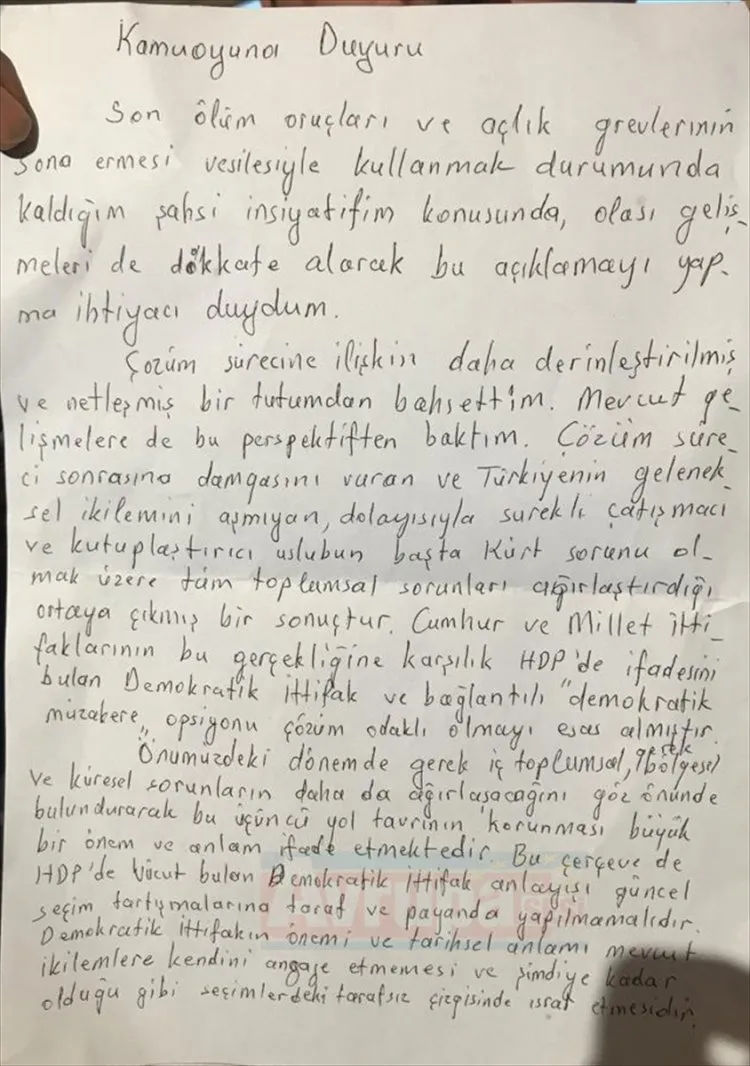 Kamuoyuna Duyuru
Son ölüm oruçları ve açlık grevlerinin
sona ermesi vesilesiyle kullanmak durumunda
kaldığım şahsi insiyatifim konusunda, olası geliş-
meleri de dikkate alarak bu açıklamayı yap-
ma ihtiyacı duydum.
Çozüm sürecine ilişkin daha derinleştirilmiş
ve netleşmiş bir tutumdan bahsettim. Mevcut ge-
lişmelere de bu perspektiften baktım. Çözüm süre-
ci sonrasına damgasını vuran ve Türkiyenin gelenek-
sel ikilemini aşmıyan, dolayısıyla surekli çatışmacı
ve kutuplaştırıcı uslubun başta Kürt sorunu ol-
mak üzere tüm toplumsal sorunları ağırlaştırdığı
ortaya çıkmış bir sonuçtur. Cumhur ve Millet itti-
faklarının bu gerçekliğine karşılık HDP'de ifadesini
bulan Demokratik ittifak ve bağlantılı "demokratik
müzakere,, opsiyonu çözüm odaklı olmayı esas almıştır.
Önumüzdeki dönemde gerek iç toplumsal, gerek bölgesel
ve küresel sorunların daha da ağırlaşacağını göz önünde
bulundurarak bu üçüncü yol tavrının korunması büyük
bir önem ve anlam ifade etmektedir. Bu çerçeve de
HDP'de vücut bulan Demokratik İttifak anlayışı güncel
seçim tartışmalarına taraf ve payanda yapılmamalıdır.
Demokratik İttifakın önemi ve tarihsel anlamı mevcut
ikilemlere kendini angaje etmemesi ve şimdiye kadar
olduğu gibi seçimlerdeki tarafsız çizgisinde ısrar etmesidir.